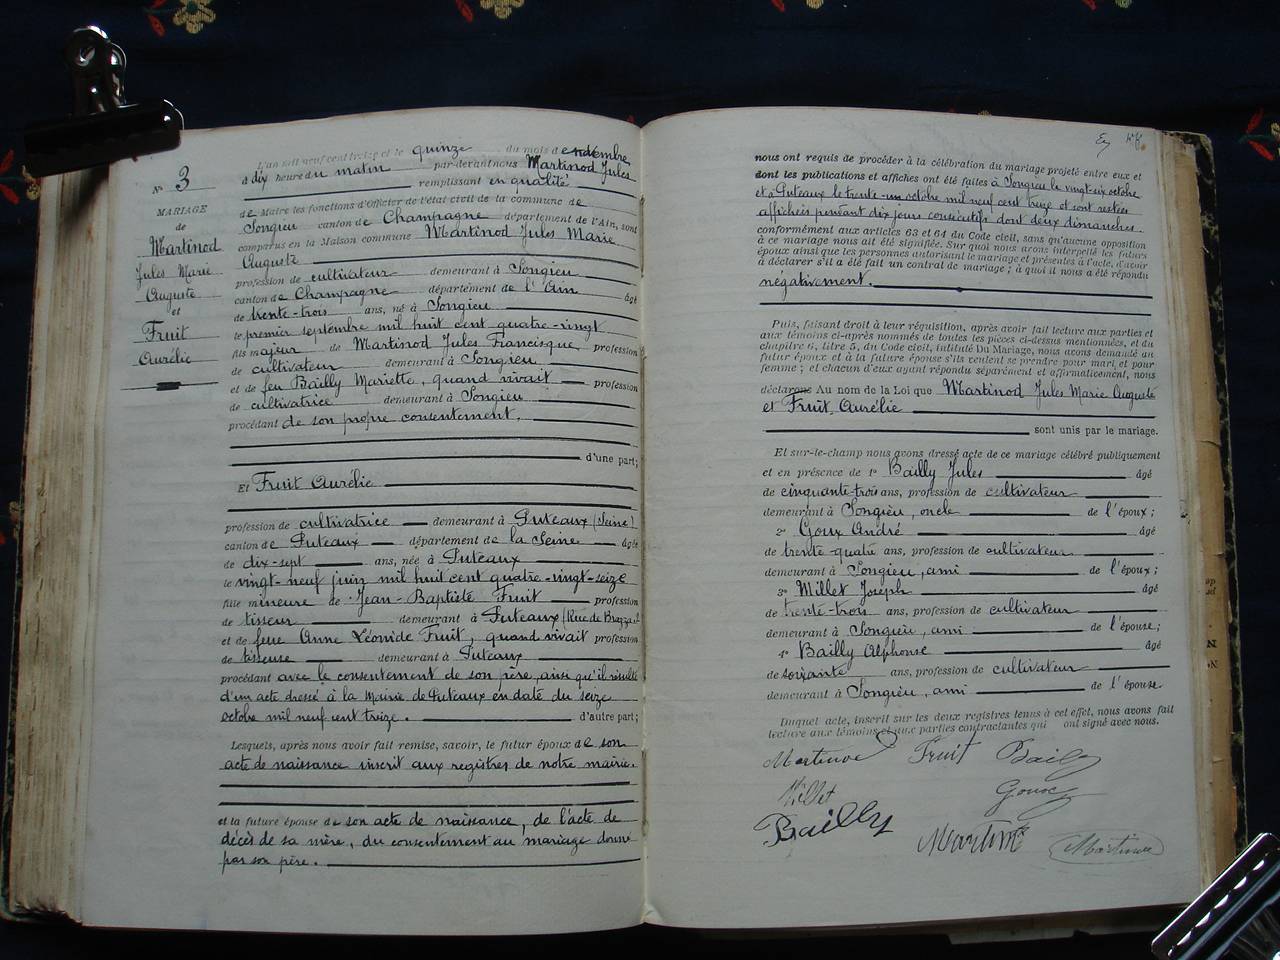 N° 3
MARIAGE
de
Martinod
Jules Marie
Auguste
et
Fruit
Aurélie
L'an mil neuf cent treize et le quinze du mois de novembre
à dix heure du matin par-devant nous Martinod Jules
remplissant en qualité
de Maire les fonctions d'Officier de l'état civil de la commune de
Songieu canton de Champagne département de l'Ain, sont
comparus en la Maison commune Martinod Jules Marie
Auguste
profession de cultivateur demeurant à Songieu
canton de Champagne département de l'Ain âgé
de trente-trois ans, né à Songieu
le premier septembre mil huit cent quatre-vingt
fils majeur de Martinod Jules Francisque profession
de cultivateur demeurant à Songieu
et de feu Bailly Mariette, quand vivait profession
de cultivatrice demeurant à Songieu
procédant de son propre consentement.
d'une part;
Et Fruit Aurélie
profession de cultivatrice demeurant à Puteaux (Seine)
canton de Puteaux département de la Seine âgée
de dix-sept ans, née à Puteaux
le vingt-neuf juin mil huit cent quatre-vingt-seize
fille mineure de Jean-Baptiste Fruit profession
de tisseur demeurant à Puteaux (Rue de Brazza
et de feue Anne Léonide Fruit, quand vivait profession
de tisseuse demeurant à Puteaux
procédant avec le consentement de son père, ainsi qu'il résulte
d'un acte dressé à la Mairie de Puteaux en date du seize
octobre mil neuf cent treize. d'autre part;
Lesquels, après nous avoir fait remise, savoir, le futur époux de son
acte de naissance inscrit aux registres de notre mairie.
et la future épouse de son acte de naissance, de l'acte de
décès de sa mère, du consentement au mariage donné
par son père.
nous ont requis de procéder à la célébration du mariage projeté entre eux et
dont les publications et affiches ont été faites à Songieu le vingt-six octobre
et à Puteaux le trente-un octobre mil neuf cent treize et sont restées
affichées pendant dix jours consécutifs dont deux dimanches.
conformément aux articles 63 et 64 du Code civil, sans qu'aucune opposition
à ce mariage nous ait été signifiée. Sur quoi nous avons interpellé les futurs
époux ainsi que les personnes autorisant le mariage et présentes à l'acte, d'avoir
à déclarer s'il a été fait un contrat de mariage; à quoi il nous a été répondu
négativement.
Puis, faisant droit à leur réquisition, après avoir fait lecture aux parties et
aux témoins ci-après nommés de toutes les pièces ci-dessus mentionnées, et du
chapitre 6, titre 5, du Code civil, intitulé Du Mariage, nous avons demandé au
futur époux et à la future épouse s'ils veulent se prendre pour mari et pour
femme; et chacun d'eux ayant répondu séparément et affirmativement, nous
déclarons Au nom de la Loi que Martinod Jules Marie Auguste
et Fruit Aurélie
sont unis par le mariage.
Et sur-le-champ nous avons dressé acte de ce mariage célébré publiquement
et en présence de 1° Bailly Jules âgé
de cinquante-trois ans, profession de cultivateur
demeurant à Songieu, oncle de l'époux;
2° Goux André âgé
de trente-quatre ans, profession de cultivateur
demeurant à Songieu, ami de l'époux;
3° Millet Joseph âgé
de trente-trois ans, profession de cultivateur
demeurant à Songieu, ami de l'épouse;
4° Bailly Alphonse
de soixante ans, profession de cultivateur
demeurant à Songieu, ami de l'épouse
Duquel acte, inscrit sur les deux registres tenus à cet effet, nous avons fait
lecture aux témoins et aux parties contractantes qui ont signé avec nous.
Martinod Fruit Bailly
Millet Goux
Bailly Martinod Martinod